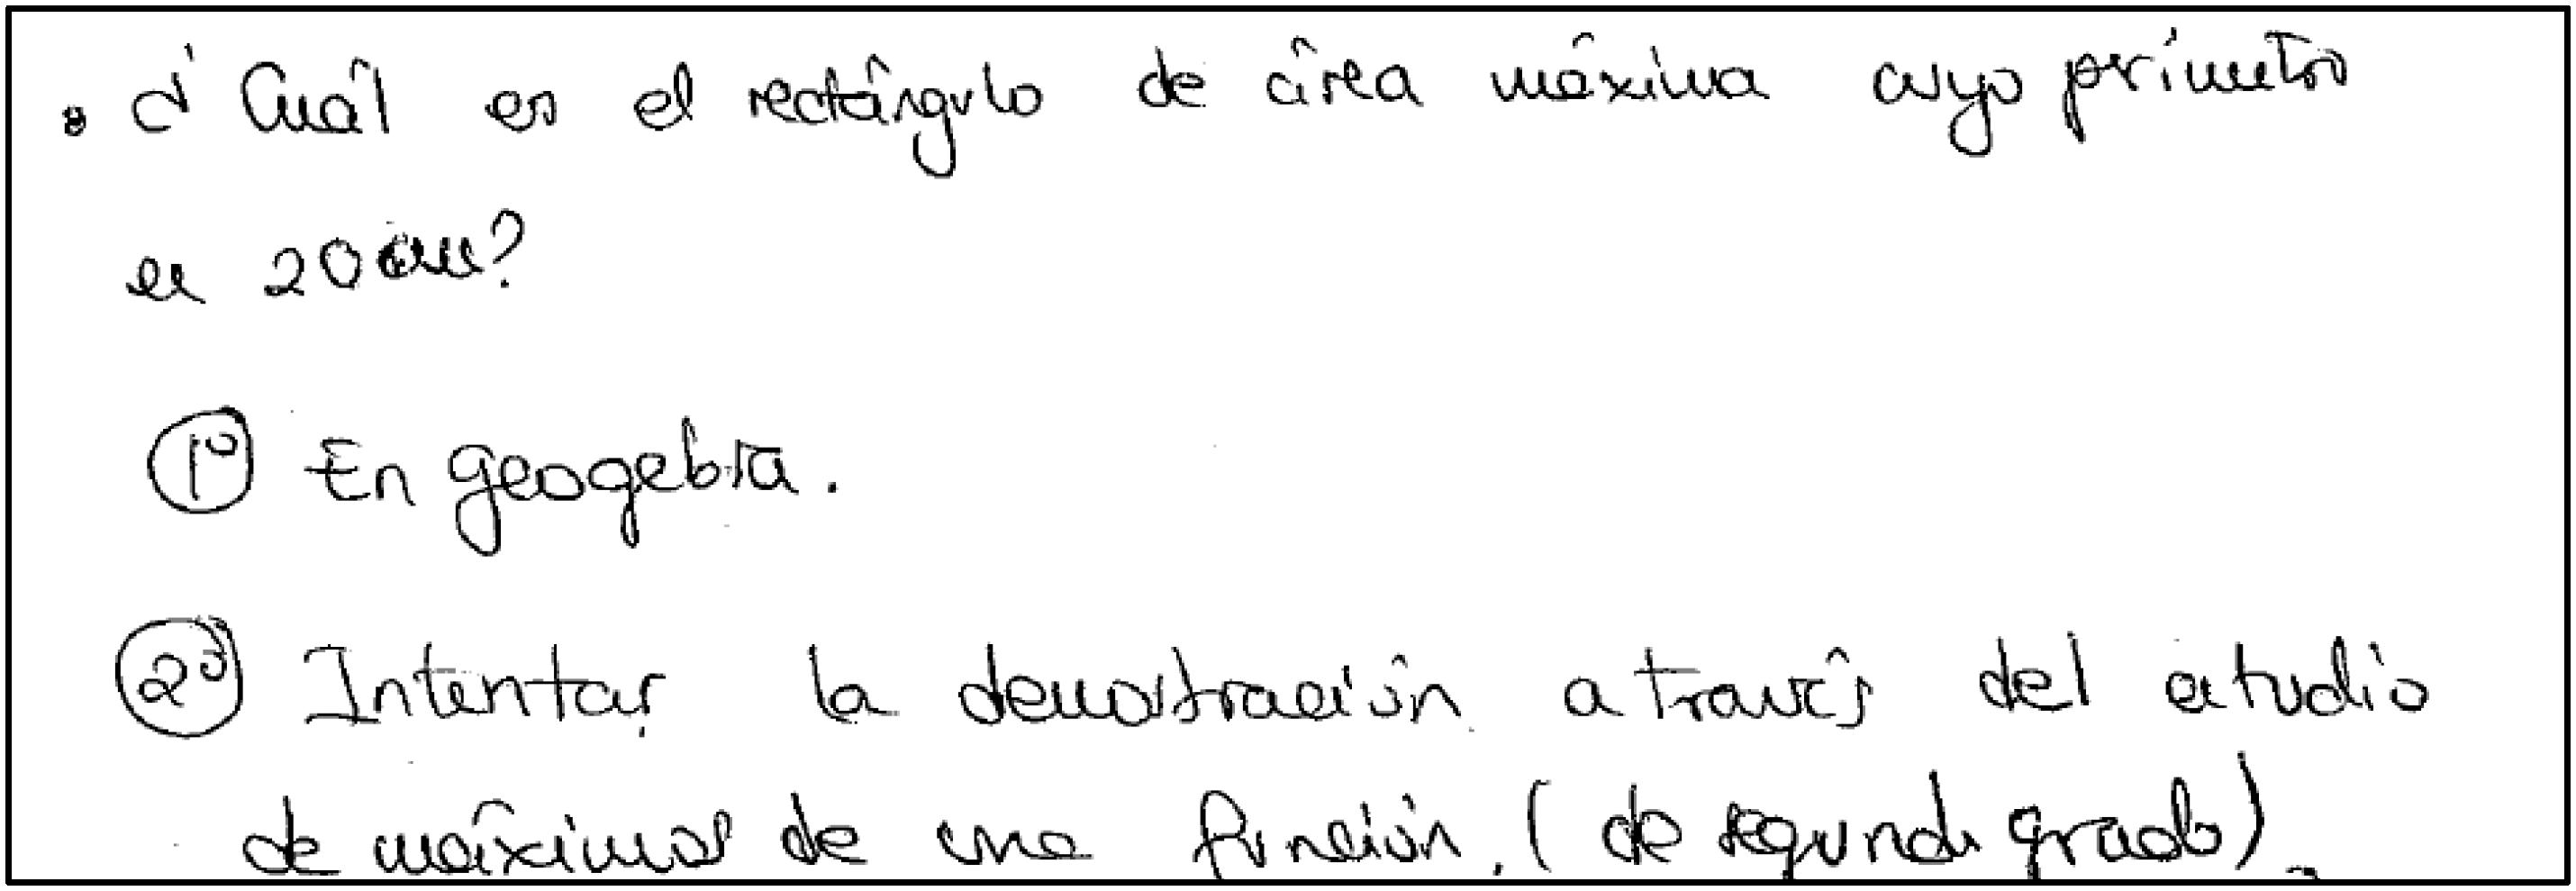 • ¿Cuál es el rectángulo de área máxima cuyo perímetro
es 20 cm?
1º En geogebra.
2º Intentar la demostración a través del estudio
de máximos de una función. (de segundo grado).